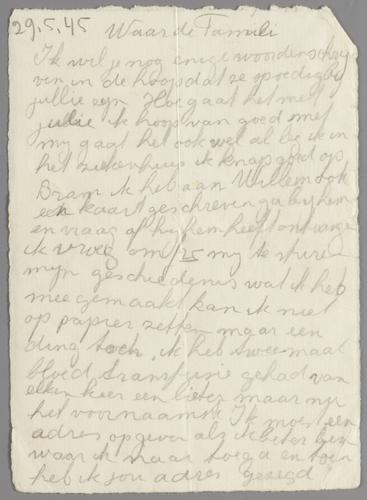 29.5.45 Waarde Famili
Ik wil je nog enige woorden schrij
ven in de hoop dat ze spoedig bij
jullie zijn Hoe gaat het met
jullie ik hoop van goed met
my gaat het ook wel al be ik in
het ziekenhuis ik knap goed op
Bram ik heb aan Willem ook
een kaart geschreven ga bij hem
en vraag of hij hem heeft ontvange
ik vroeg om 25 my te sture
mijn geschiedenis wat ik heb
mee gemaakt kan ik niet
op papier zetten maar een
ding toch, ik heb twee maal
bloed transfusie gehad van
elken keer een lieter maar nu
het voornaamste Ik moest een
adres opgeven als ik beter ben
waar ik naar toe ga en toen
heb ik jou adres gezegd